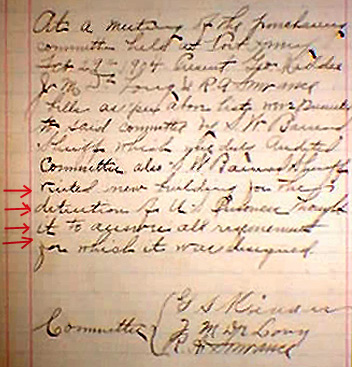 At a meeting of the purchasing
committee held at Port
Feb 29th 1904 Present Geo
J M De Long & R A
bills as per above list were presented
to said committee by S. W.
Sheriff which were duly Audited
Committee also
new building for the
detention of U S Prisoners
it to answer all requirements
for which it was designed.
G S
Committee J M De Long
R A